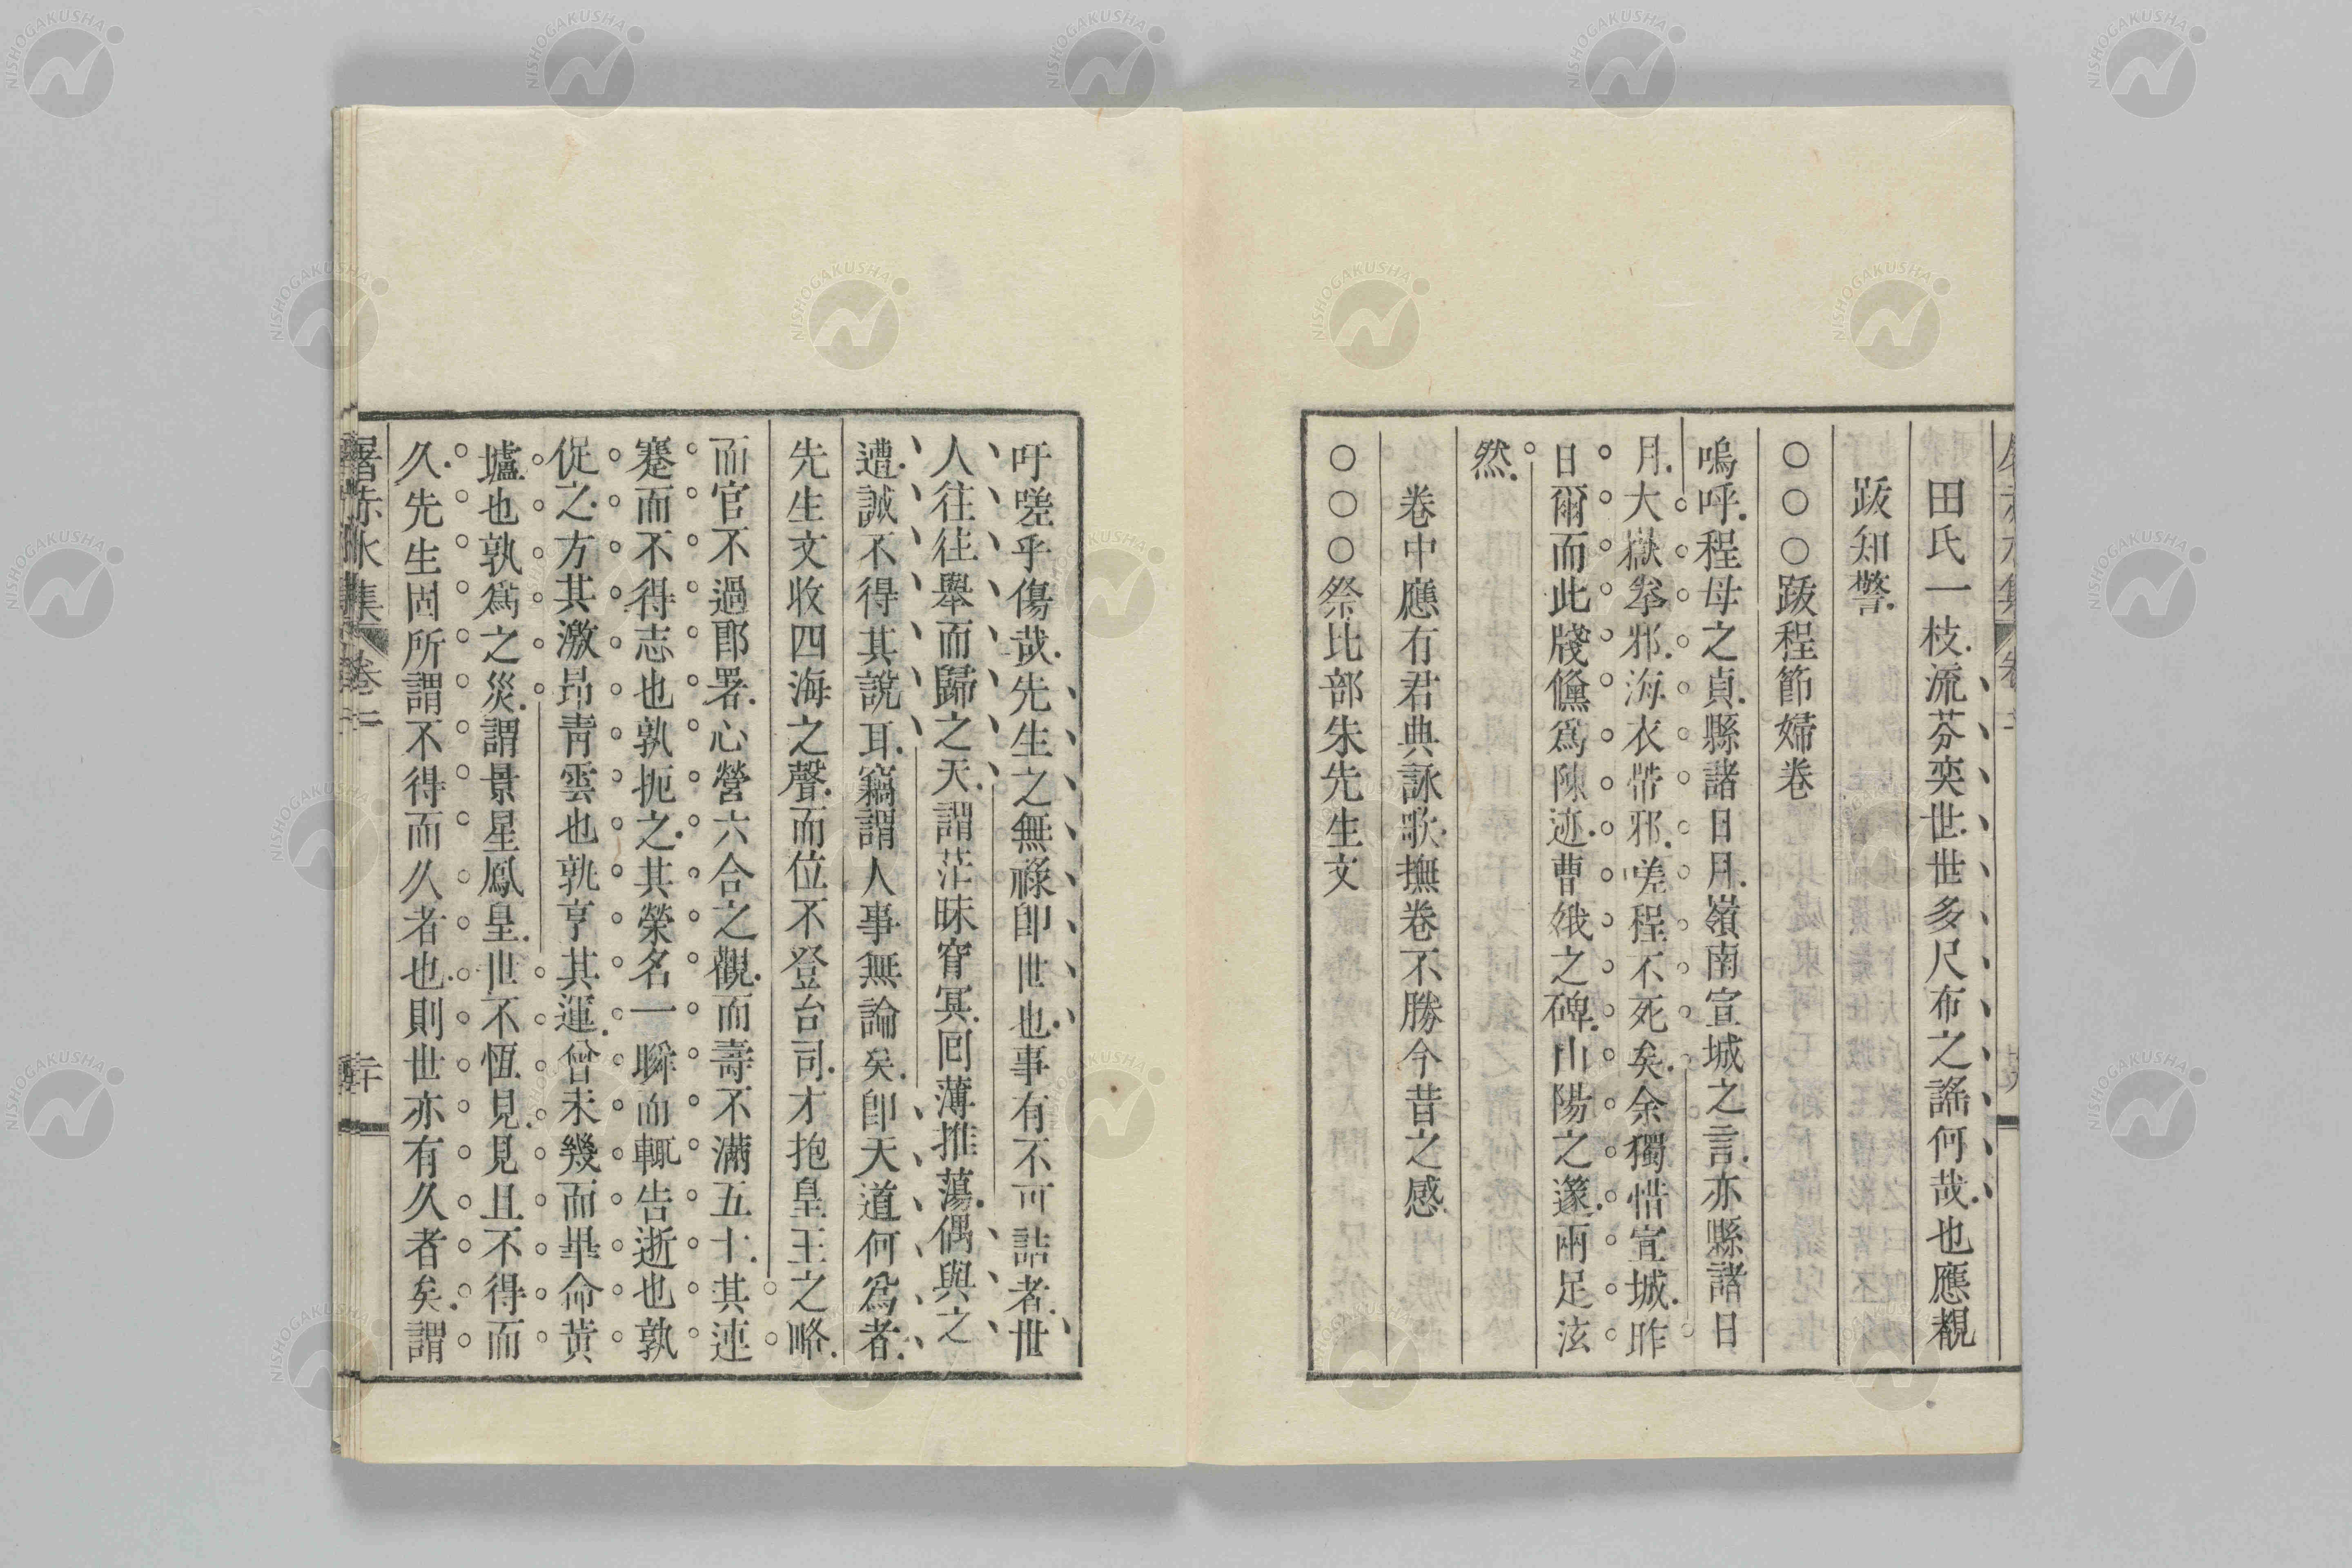 田氏一枝流芬奕世世多尺布之謠何哉也應覩
跋知警
○○○跋程節婦卷
嗚呼程母之貞縣諸日月嶺南宣城之言亦縣諸日
月大嶽峚邪海衣帶邪嗟程不死矣余獨惜宣城昨
日爾而此牋儵爲陳迹曹娥之碑山陽之邃兩足泫
然
卷中應有君典詠歌撫卷不勝今昔之感
○○○祭比部朱先生文
吁嗟乎傷哉先生之無祿卽世也事有不可詰者世
人往往舉而歸之天謂茫昧窅冥囘薄推蕩偶與之
遭誠不得其說耳竊謂人事無論矣卽天道何爲者
先生文收四海之聲而位不登台司才抱皇王之略
而官不過郎署心營六合之觀而壽不滿五十其迍
蹇而不得志也孰扼之其榮名一瞬而輒告逝也孰
促之方其激昂靑雲也孰亨其運曾未幾而畢命黃
壚也孰爲之災謂景星鳳皇世不恆見見且不得而
久先生固所謂不得而久者也則世亦有久者矣謂
屠赤水集 卷二 二十